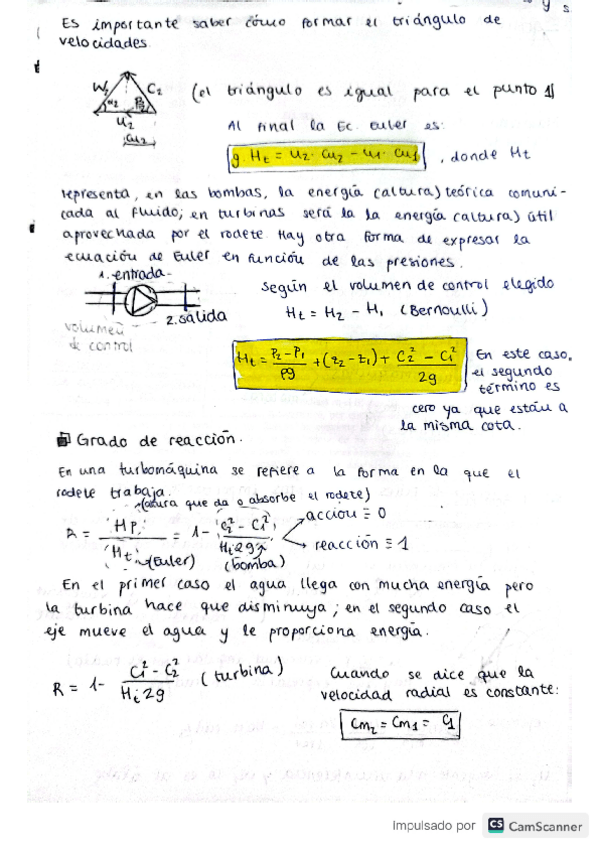 y s
Es importante saber cómo formar el triángulo de
velocidades.
W2 C2
α2 β2
u2
Cu2
(el triángulo es igual para el punto 1)
Al final la Ec. Euler es:
g. Ht = u2. cu2 - u1. cu1 , donde Ht
representa, en las bombas, la energía (altura) teórica comuni-
cada al fluido; en turbinas será la la energía (altura) útil
aprovechada por el rodete. Hay otra forma de expresar la
ecuación de Euler en función de las presiones.
1. entrada
2. salida
volumen
de control
Según el volumen de control elegido
Ht = H2 - H1 (Bernoulli)
Ht = (P2 - P1)/ρg + (z2 - z1) + (C2² - C1²)/2g
En este caso,
el segundo
término es
cero ya que están a
la misma cota.
Grado de reacción.
En una turbomáquina se refiere a la forma en la que el
rodete trabaja.
(altura que da o absorbe el rodete)
R = Hp/Ht = 1 - (C2² - C1²)/(Ht 2g)
acción ≡ 0
reacción ≡ 1
(Euler) (bomba)
En el primer caso el agua llega con mucha energía pero
la turbina hace que disminuya; en el segundo caso el
eje mueve el agua y le proporciona energía.
R = 1 - (C1² - C2²)/(Ht 2g) (turbina)
Cuando se dice que la
velocidad radial es constante:
Cm2 = Cm1 = C1
Impulsado por CS CamScanner